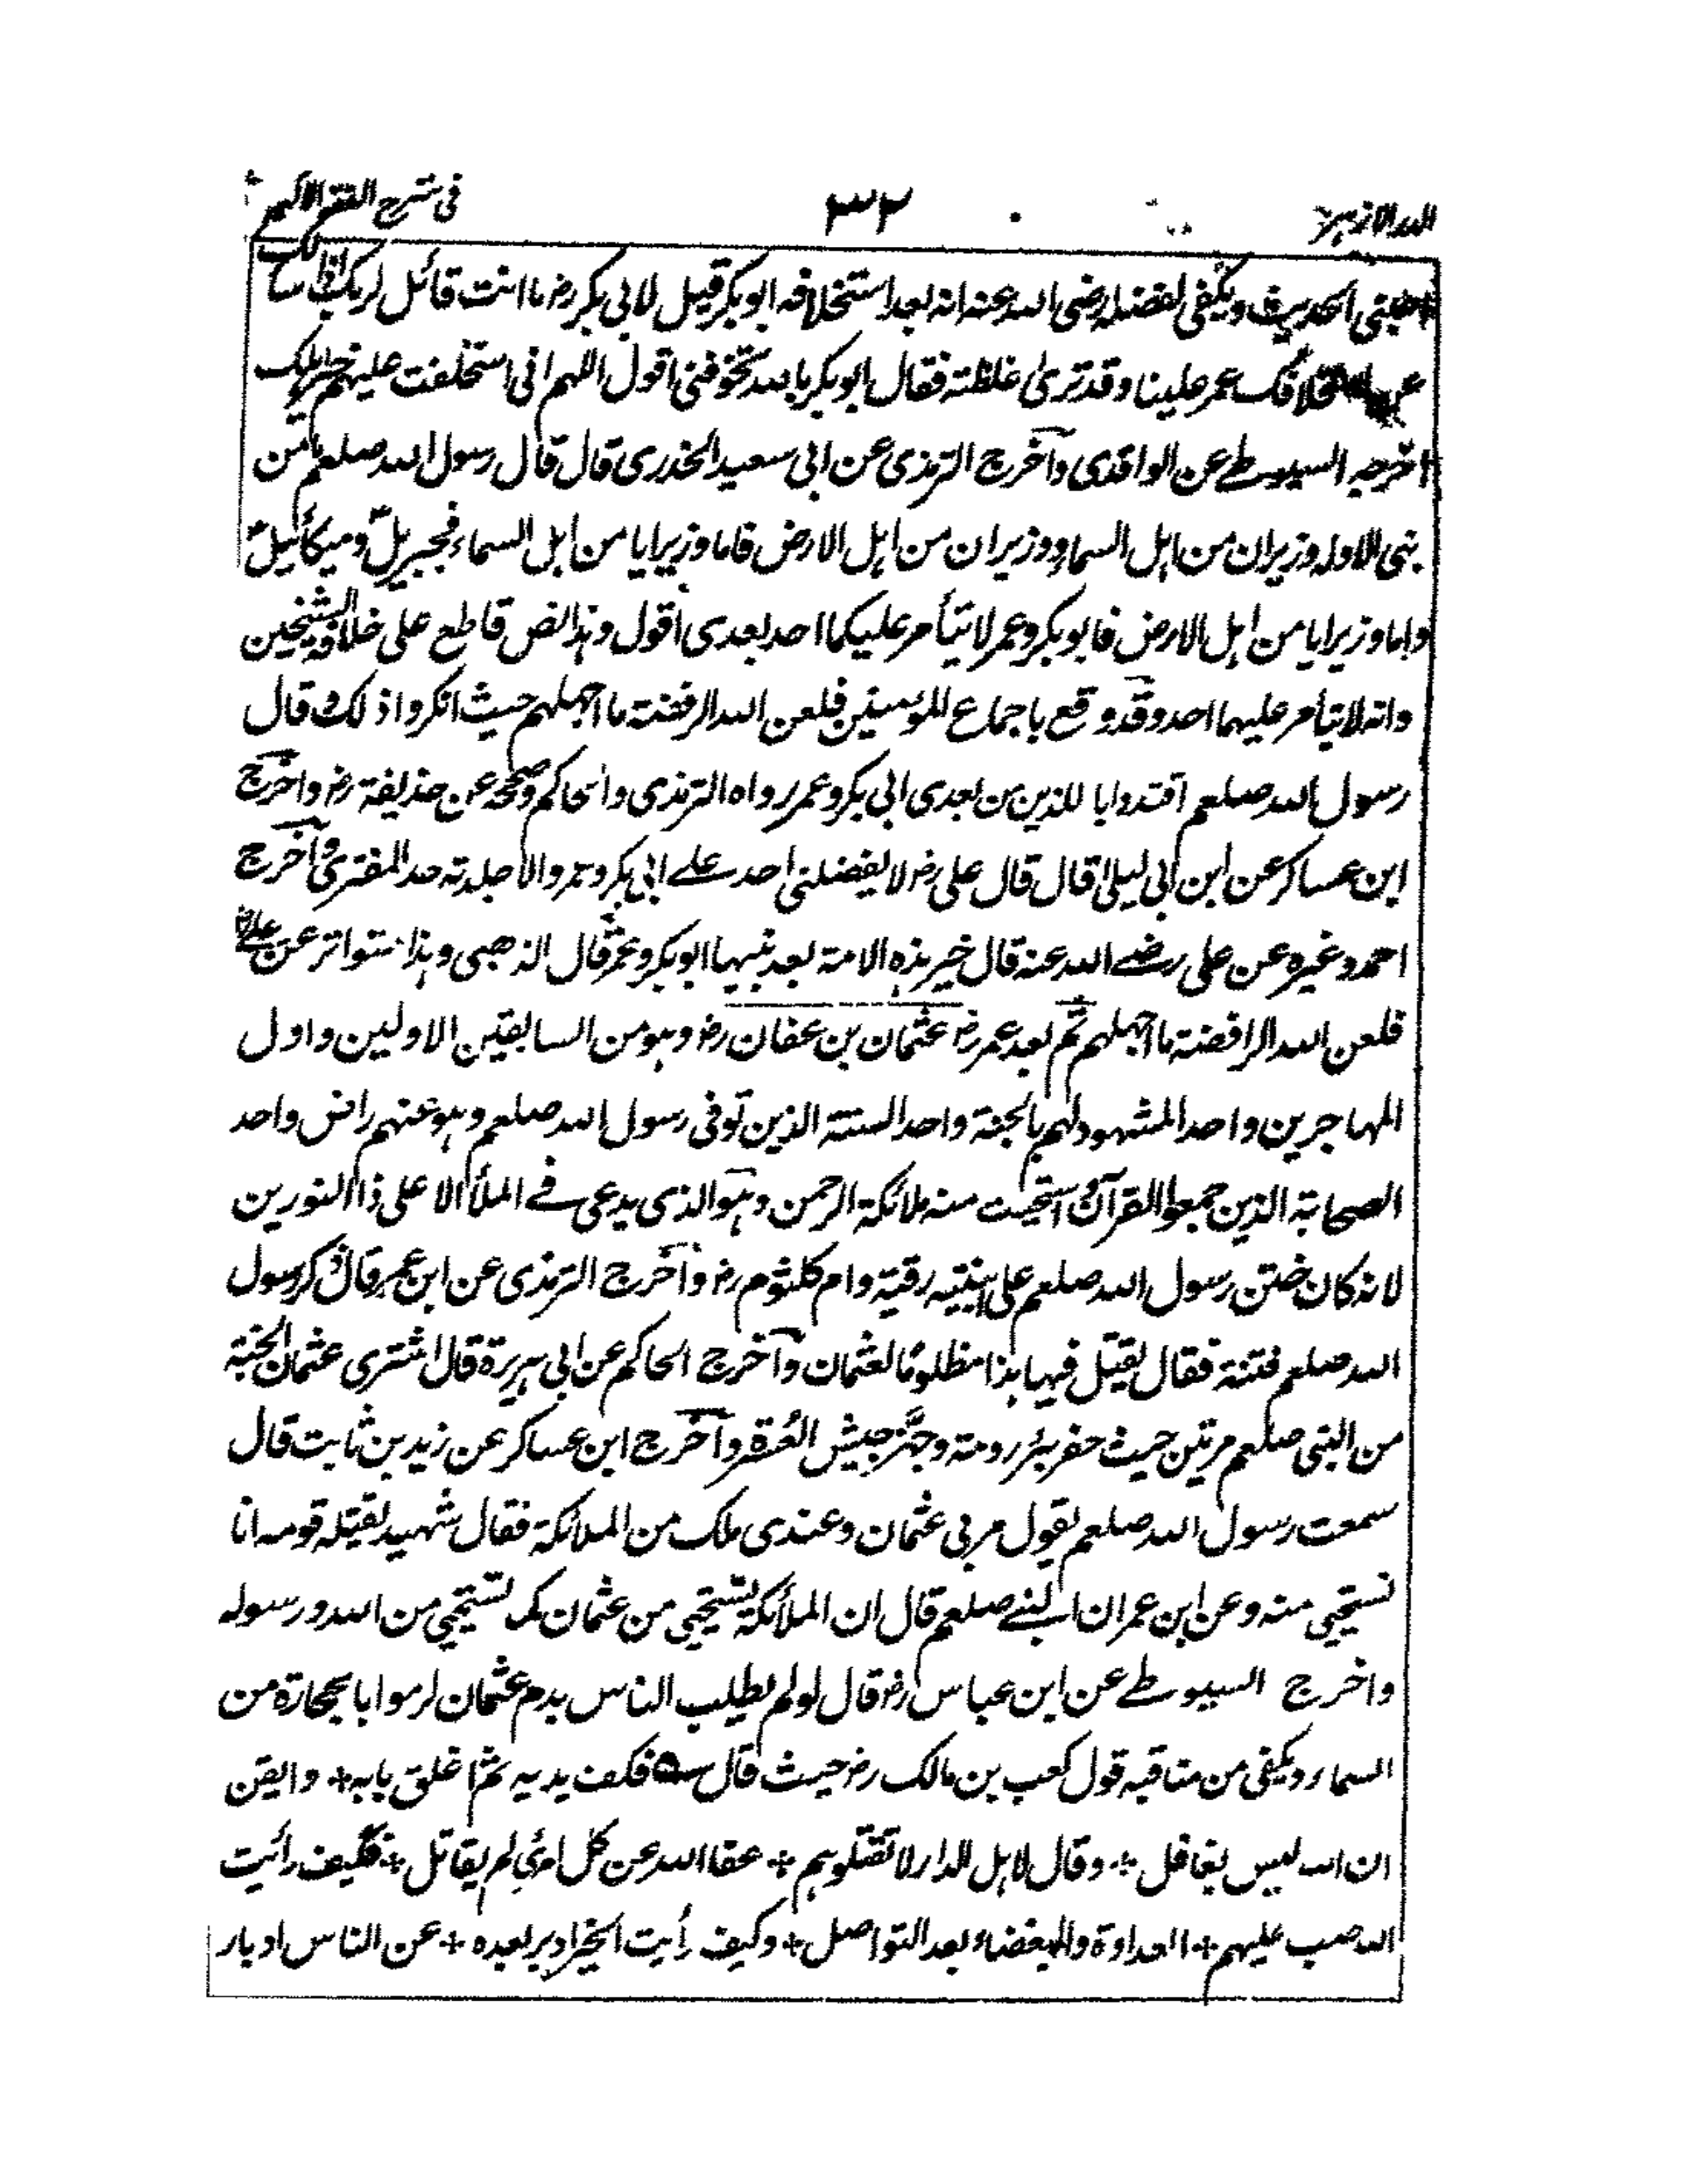 الدر الازهر ٣٢ في شرح الفقه الاكبر
ويكفي لفضله رضي الله عنه انه بعد استخلافه ابو بكر قيل لابي بكر رض ما انت قائل لربك اذا سألك
عمر علينا وقد ترى غلظته فقال ابو بكر بالله تخوفني اقول اللهم اني استخلفت عليهم خير اهلك
اخرجه السيوطي عن الواقدي واخرج الترمذي عن ابي سعيد الخدري قال قال رسول الله صلعم ما من
نبي الا وله وزيران من اهل السماء ووزيران من اهل الارض فاما وزيرايا من اهل السماء فجبريل وميكائيل
واما وزيرايا من اهل الارض فابو بكر وعمر لا يتأمر عليكما احد بعدي اقول وهذا نص قاطع على خلافة الشيخين
وانه لا يتأمر عليهما احد وقد وقع باجماع المؤمنين فلعن الله الرفضة ما اجهلهم حيث انكروا ذلك قال
رسول الله صلعم اقتدوا بالذين من بعدي ابي بكر وعمر رواه الترمذي والحاكم وصححه عن حذيفة رض واخرج
ابن عساكر عن ابن ابي ليلى قال قال علي رض لا يفضلني احد على ابي بكر وعمر والا جلدته حد المفتري واخرج
احمد وغيره عن علي رضي الله عنه قال خير هذه الامة بعد نبيها ابو بكر وعمر قال الذهبي وهذا متواتر عن علي رض
فلعن الله الرافضة ما اجهلهم ثم بعد عمر رض عثمان بن عفان رض وهو من السابقين الاولين واول
المهاجرين واحد المشهود لهم بالجنة واحد الستة الذين توفي رسول الله صلعم وهو عنهم راض واحد
الصحابة الذين جمعوا القرآن استحيت منه ملائكة الرحمن وهو الذي يدعى في الملأ الاعلى ذا النورين
لانه كان ختن رسول الله صلعم على ابنتيه رقية وام كلثوم رض واخرج الترمذي عن ابن عمر قال ذكر رسول
الله صلعم فتنة فقال يقتل فيها هذا مظلومًا لعثمان واخرج الحاكم عن ابي هريرة قال اشترى عثمان الجنة
من النبي صلعم مرتين حيث حفر بئر رومة وجهّز جيش العُسرة واخرج ابن عساكر عن زيد بن ثابت قال
سمعت رسول الله صلعم يقول مر بي عثمان وعندي ملك من الملائكة فقال شهيد يقتله قومه انا
نستحيي منه وعن ابن عمر ان النبي صلعم قال ان الملائكة لتستحيي من عثمان كما تستحيي من الله ورسوله
واخرج السيوطي عن ابن عباس رض قال لو لم يطلب الناس بدم عثمان لرموا بالحجارة من
السماء ويكفي من مناقبه قول كعب بن مالك رض حيث قال فكف يديه ثم اغلق بابه + وايقن
ان الله ليس بغافل + وقال لاهل الدار لا تقتلوهم + عفا الله عن كل امرئ لم يقاتل + فكيف رأيت
الله صب عليهم + العداوة والبغضاء بعد التواصل + وكيف رأيت الخير ادبر بعده + عن الناس ادبار